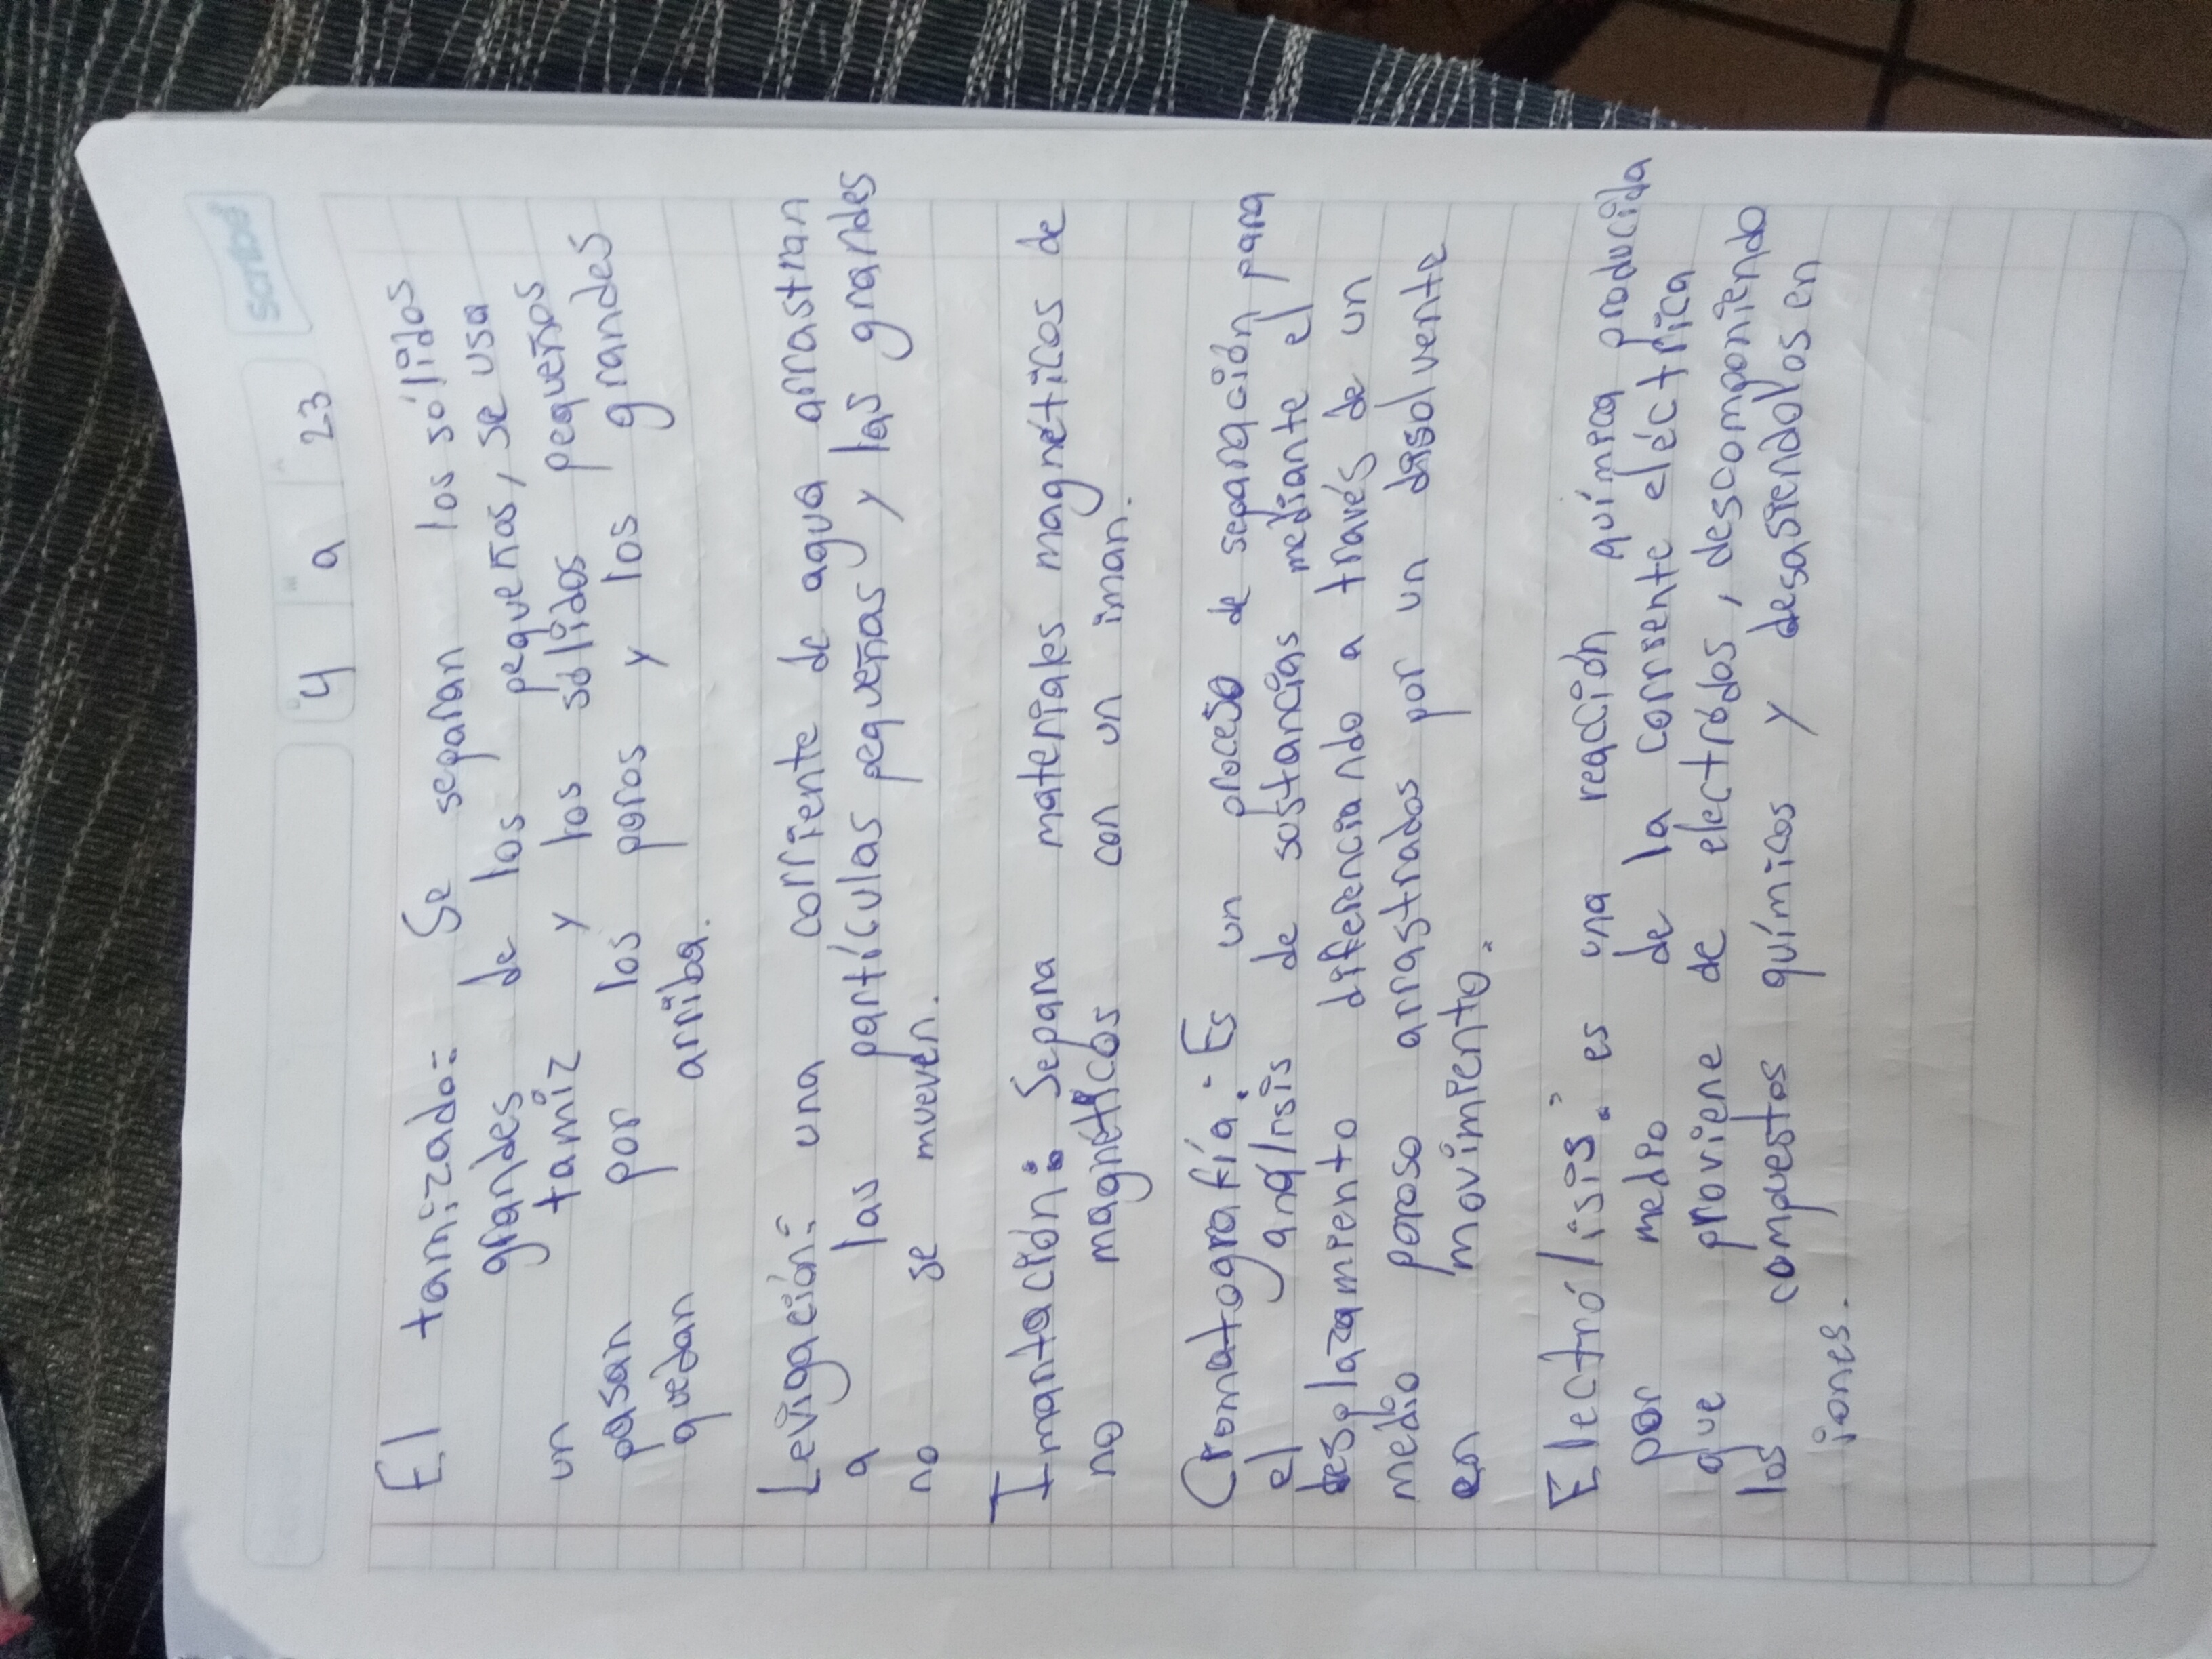 scribe
4 a 23
El tamizado: Se separan los sólidos
grandes de los pequeños, se usa
un tamiz y los sólidos pequeños
pasan por los poros y los grandes
quedan arriba.
Levigación: una corriente de agua arrastran
a las partículas pequeñas y las grandes
no se mueven.
Imantación: Separa materiales magnéticos de
no magnéticos con un iman.
Cromatografía: Es un proceso de separación para
el análisis de sustancias mediante el
desplazamiento diferenciando a través de un
medio poroso arrastrados por un disolvente
en movimiento.
Electrólisis: es una reacción química producida
por medio de la corrsente eléctrica
que proviene de electródos, descomponiendo
los compuestos químicos y desasiendolos en
iones.